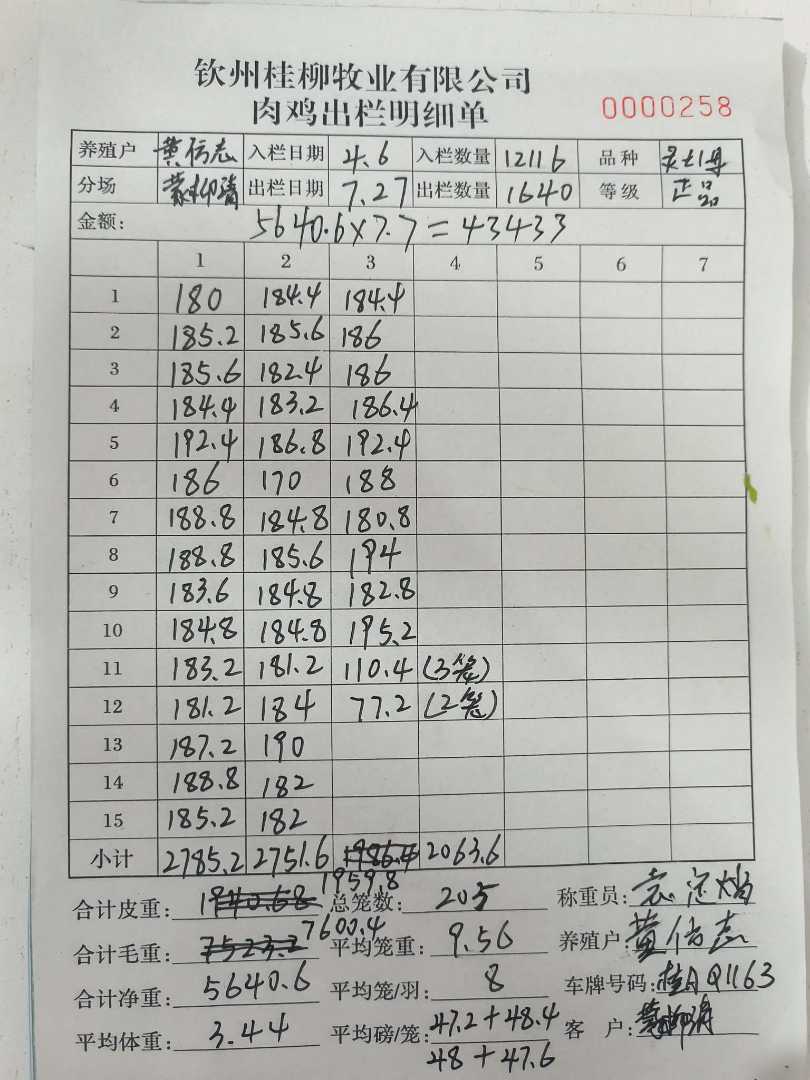 钦州桂柳牧业有限公司
肉鸡出栏明细单 0000258
养殖户 黄信志 入栏日期 4.6 入栏数量 12116 品种
分场 出栏日期 7.27 出栏数量 1640 等级 正品
金额: 5640.6×7.7=43433
1 2 3 4 5 6 7
1 180 184.4 184.4
2 185.2 185.6 186
3 185.6 182.4 186
4 184.4 183.2 186.4
5 192.4 186.8 192.4
6 186 170 188
7 188.8 184.8 180.8
8 188.8 185.6 194
9 183.6 184.8 182.8
10 184.8 184.8 195.2
11 183.2 181.2 110.4 (3笼)
12 181.2 184 77.2 (2笼)
13 187.2 190
14 188.8 182
15 185.2 182
小计 2785.2 2751.6 1986.4 2063.6
合计皮重: 1940.68 1959.8 总笼数: 205 称重员:
合计毛重: 7523.2 7600.4 平均笼重: 9.56 养殖户 黄信志
合计净重: 5640.6 平均笼/羽: 8 车牌号码: 桂AQ1163
平均体重: 3.44 平均磅/笼: 47.2+48.4 客 户:
48+47.6